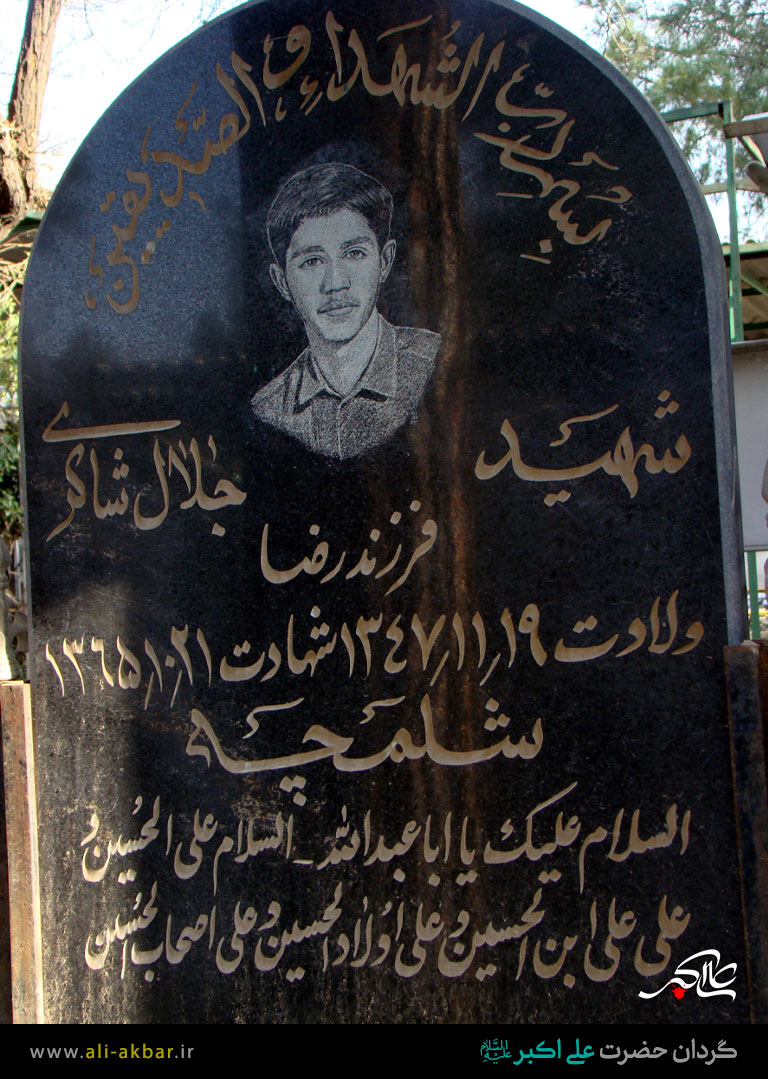 بسم رب الشهداء و الصدیقین
شهید جلال شاکری
فرزند رضا
ولادت ۱۳۴۷/۱۱/۱۹ شهادت ۱۳۶۵/۱۰/۲۱
شلمچه
السلام علیک یا ابا عبدالله - السلام علی الحسین و
علی علی ابن الحسین و علی اولاد الحسین و علی اصحاب الحسین
علی اکبر
www.ali-akbar.ir
گردان حضرت علی اکبر علیه السلام